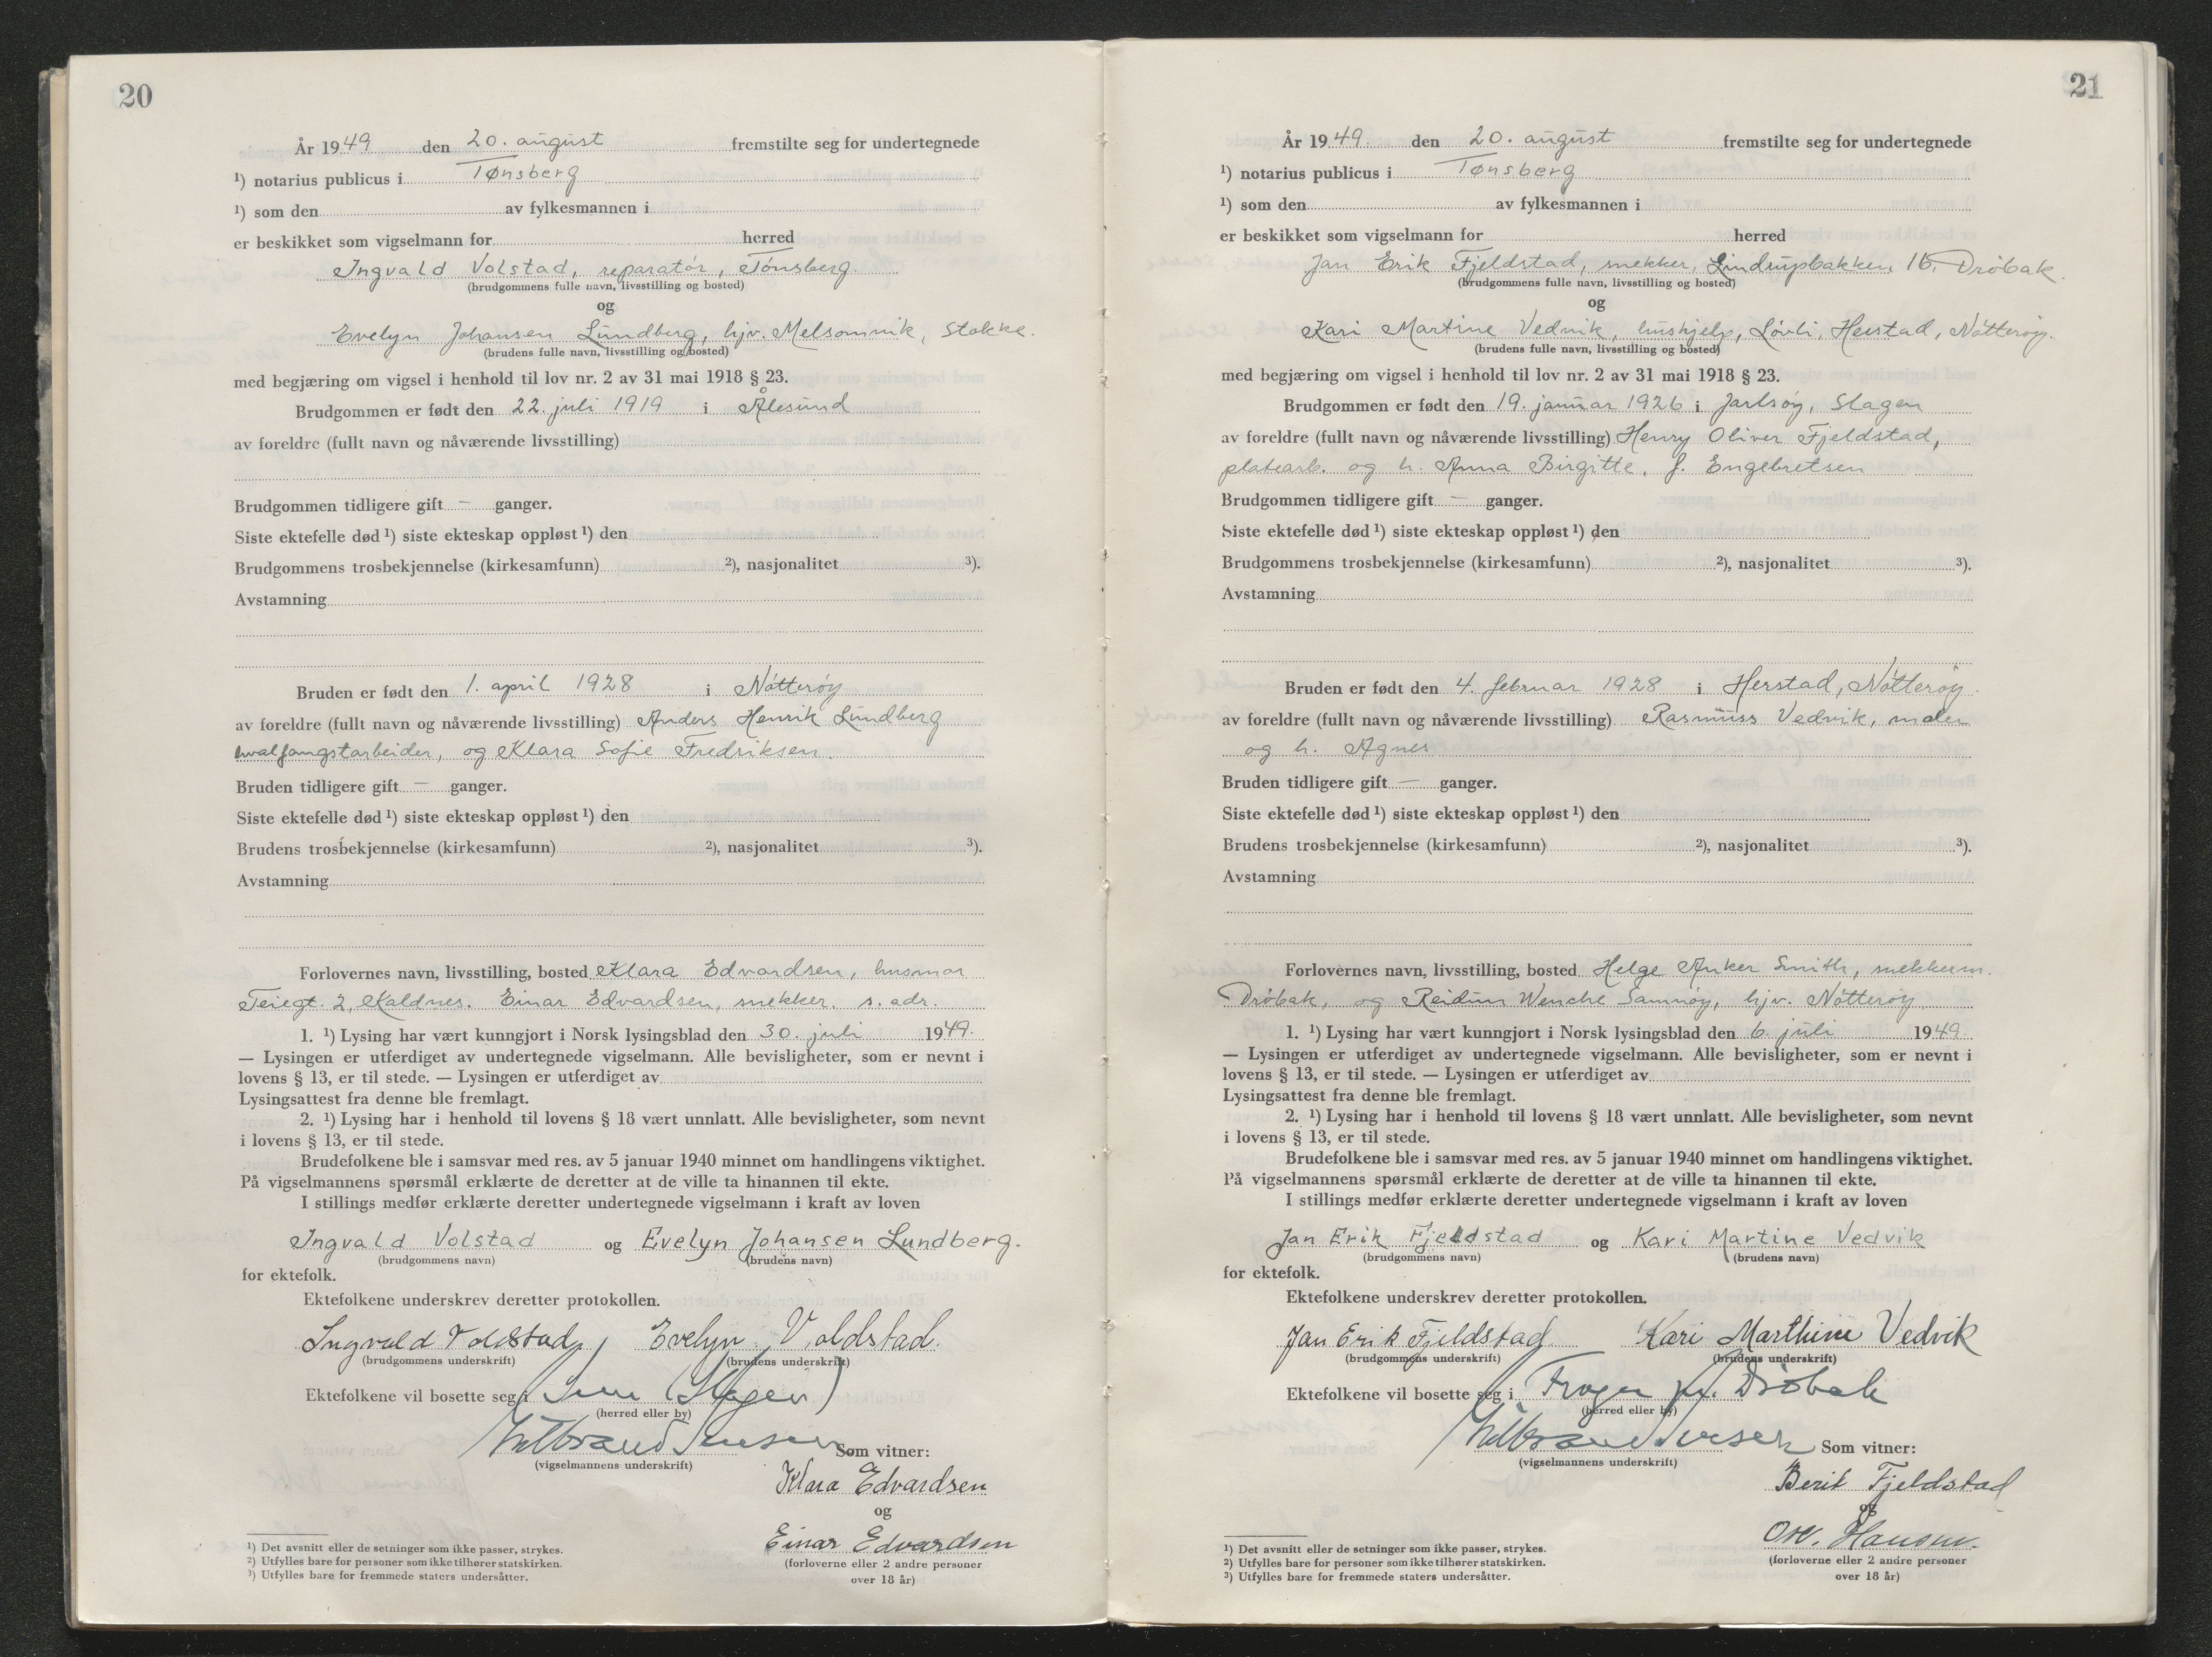 20
År 1949 den 20. august fremstilte seg for undertegnede
¹) notarius publicus i Tønsberg
¹) som den av fylkesmannen i
er beskikket som vigselmann for herred
Ingvald Volstad, reparatør, Tønsberg.
(brudgommens fulle navn, livsstilling og bosted)
og
Evelyn Johansen Lundberg, hjv. Melsomvik, Stokke.
(brudens fulle navn, livsstilling og bosted)
med begjæring om vigsel i henhold til lov nr. 2 av 31 mai 1918 § 23.
Brudgommen er født den 22. juli 1919 i Ålesund
av foreldre (fullt navn og nåværende livsstilling)
Brudgommen tidligere gift — ganger.
Siste ektefelle død ¹) siste ekteskap oppløst ¹) den
Brudgommens trosbekjennelse (kirkesamfunn) ²), nasjonalitet ³).
Avstamning
Bruden er født den 1. april 1928 i Nøtterøy
av foreldre (fullt navn og nåværende livsstilling) Anders Henrik Lundberg
hvalfangstarbeider, og Klara Sofie Fredriksen.
Bruden tidligere gift — ganger.
Siste ektefelle død ¹) siste ekteskap oppløst ¹) den
Brudens trosbekjennelse (kirkesamfunn) ²), nasjonalitet ³).
Avstamning
Forlovernes navn, livsstilling, bosted Klara Edvardsen, husmor
Teiegt. 2, Kaldnes. Einar Edvardsen, snekker. s. adr.
1. ¹) Lysing har vært kunngjort i Norsk lysingsblad den 30. juli 1949.
— Lysingen er utferdiget av undertegnede vigselmann. Alle bevisligheter, som er nevnt i
lovens § 13, er til stede. — Lysingen er utferdiget av
Lysingsattest fra denne ble fremlagt.
2. ¹) Lysing har i henhold til lovens § 18 vært unnlatt. Alle bevisligheter, som nevnt
i lovens § 13, er til stede.
Brudefolkene ble i samsvar med res. av 5 januar 1940 minnet om handlingens viktighet.
På vigselmannens spørsmål erklærte de deretter at de ville ta hinannen til ekte.
I stillings medfør erklærte deretter undertegnede vigselmann i kraft av loven
Ingvald Volstad og Evelyn Johansen Lundberg.
(brudgommens navn) (brudens navn)
for ektefolk.
Ektefolkene underskrev deretter protokollen.
Ingvald Voldstad, Evelyn Voldstad.
(brudgommens underskrift) (brudens underskrift)
Ektefolkene vil bosette seg i Sem (Slagen)
(herred eller by)
Som vitner:
(vigselmannens underskrift)
Klara Edvardsen
og
Einar Edvardsen
(forloverne eller 2 andre personer
over 18 år)
¹) Det avsnitt eller de setninger som ikke passer, strykes.
²) Utfylles bare for personer som ikke tilhører statskirken.
³) Utfylles bare for fremmede staters undersåtter.
21
År 1949. den 20. august fremstilte seg for undertegnede
¹) notarius publicus i Tønsberg
¹) som den av fylkesmannen i
er beskikket som vigselmann for herred
Jan Erik Fjeldstad, snekker, Lindrupbakken 16, Drøbak.
(brudgommens fulle navn, livsstilling og bosted)
og
Kari Martine Vedvik, hushjelp, Løvli, Herstad, Nøtterøy.
(brudens fulle navn, livsstilling og bosted)
med begjæring om vigsel i henhold til lov nr. 2 av 31 mai 1918 § 23.
Brudgommen er født den 19. januar 1926 i Jarlsøy, Slagen
av foreldre (fullt navn og nåværende livsstilling) Henry Oliver Fjeldstad,
platearb. og h. Anna Birgitte, f. Engebretsen
Brudgommen tidligere gift — ganger.
Siste ektefelle død ¹) siste ekteskap oppløst ¹) den
Brudgommens trosbekjennelse (kirkesamfunn) ²), nasjonalitet ³).
Avstamning
Bruden er født den 4. februar 1928 — i Herstad, Nøtterøy.
av foreldre (fullt navn og nåværende livsstilling) Rasmuss Vedvik, maler
og h. Agnes
Bruden tidligere gift — ganger.
Siste ektefelle død ¹) siste ekteskap oppløst ¹) den
Brudens trosbekjennelse (kirkesamfunn) ²), nasjonalitet ³).
Avstamning
Forlovernes navn, livsstilling, bosted Helge Anker Smith, snekkerm.
Drøbak, og Reidun Wenche Samnøy, hjv. Nøtterøy
1. ¹) Lysing har vært kunngjort i Norsk lysingsblad den 6. juli 1949.
— Lysingen er utferdiget av undertegnede vigselmann. Alle bevisligheter, som er nevnt i
lovens § 13, er til stede. — Lysingen er utferdiget av
Lysingsattest fra denne ble fremlagt.
2. ¹) Lysing har i henhold til lovens § 18 vært unnlatt. Alle bevisligheter, som nevnt
i lovens § 13, er til stede.
Brudefolkene ble i samsvar med res. av 5 januar 1940 minnet om handlingens viktighet.
På vigselmannens spørsmål erklærte de deretter at de ville ta hinannen til ekte.
I stillings medfør erklærte deretter undertegnede vigselmann i kraft av loven
Jan Erik Fjeldstad og Kari Martine Vedvik
(brudgommens navn) (brudens navn)
for ektefolk.
Ektefolkene underskrev deretter protokollen.
Jan Erik Fjeldstad Kari Marthine Vedvik
(brudgommens underskrift) (brudens underskrift)
Ektefolkene vil bosette seg i Frogn pr. Drøbak
(herred eller by)
Som vitner:
(vigselmannens underskrift)
Berit Fjeldstad
og
Hansen.
(forloverne eller 2 andre personer
over 18 år)
¹) Det avsnitt eller de setninger som ikke passer, strykes.
²) Utfylles bare for personer som ikke tilhører statskirken.
³) Utfylles bare for fremmede staters undersåtter.